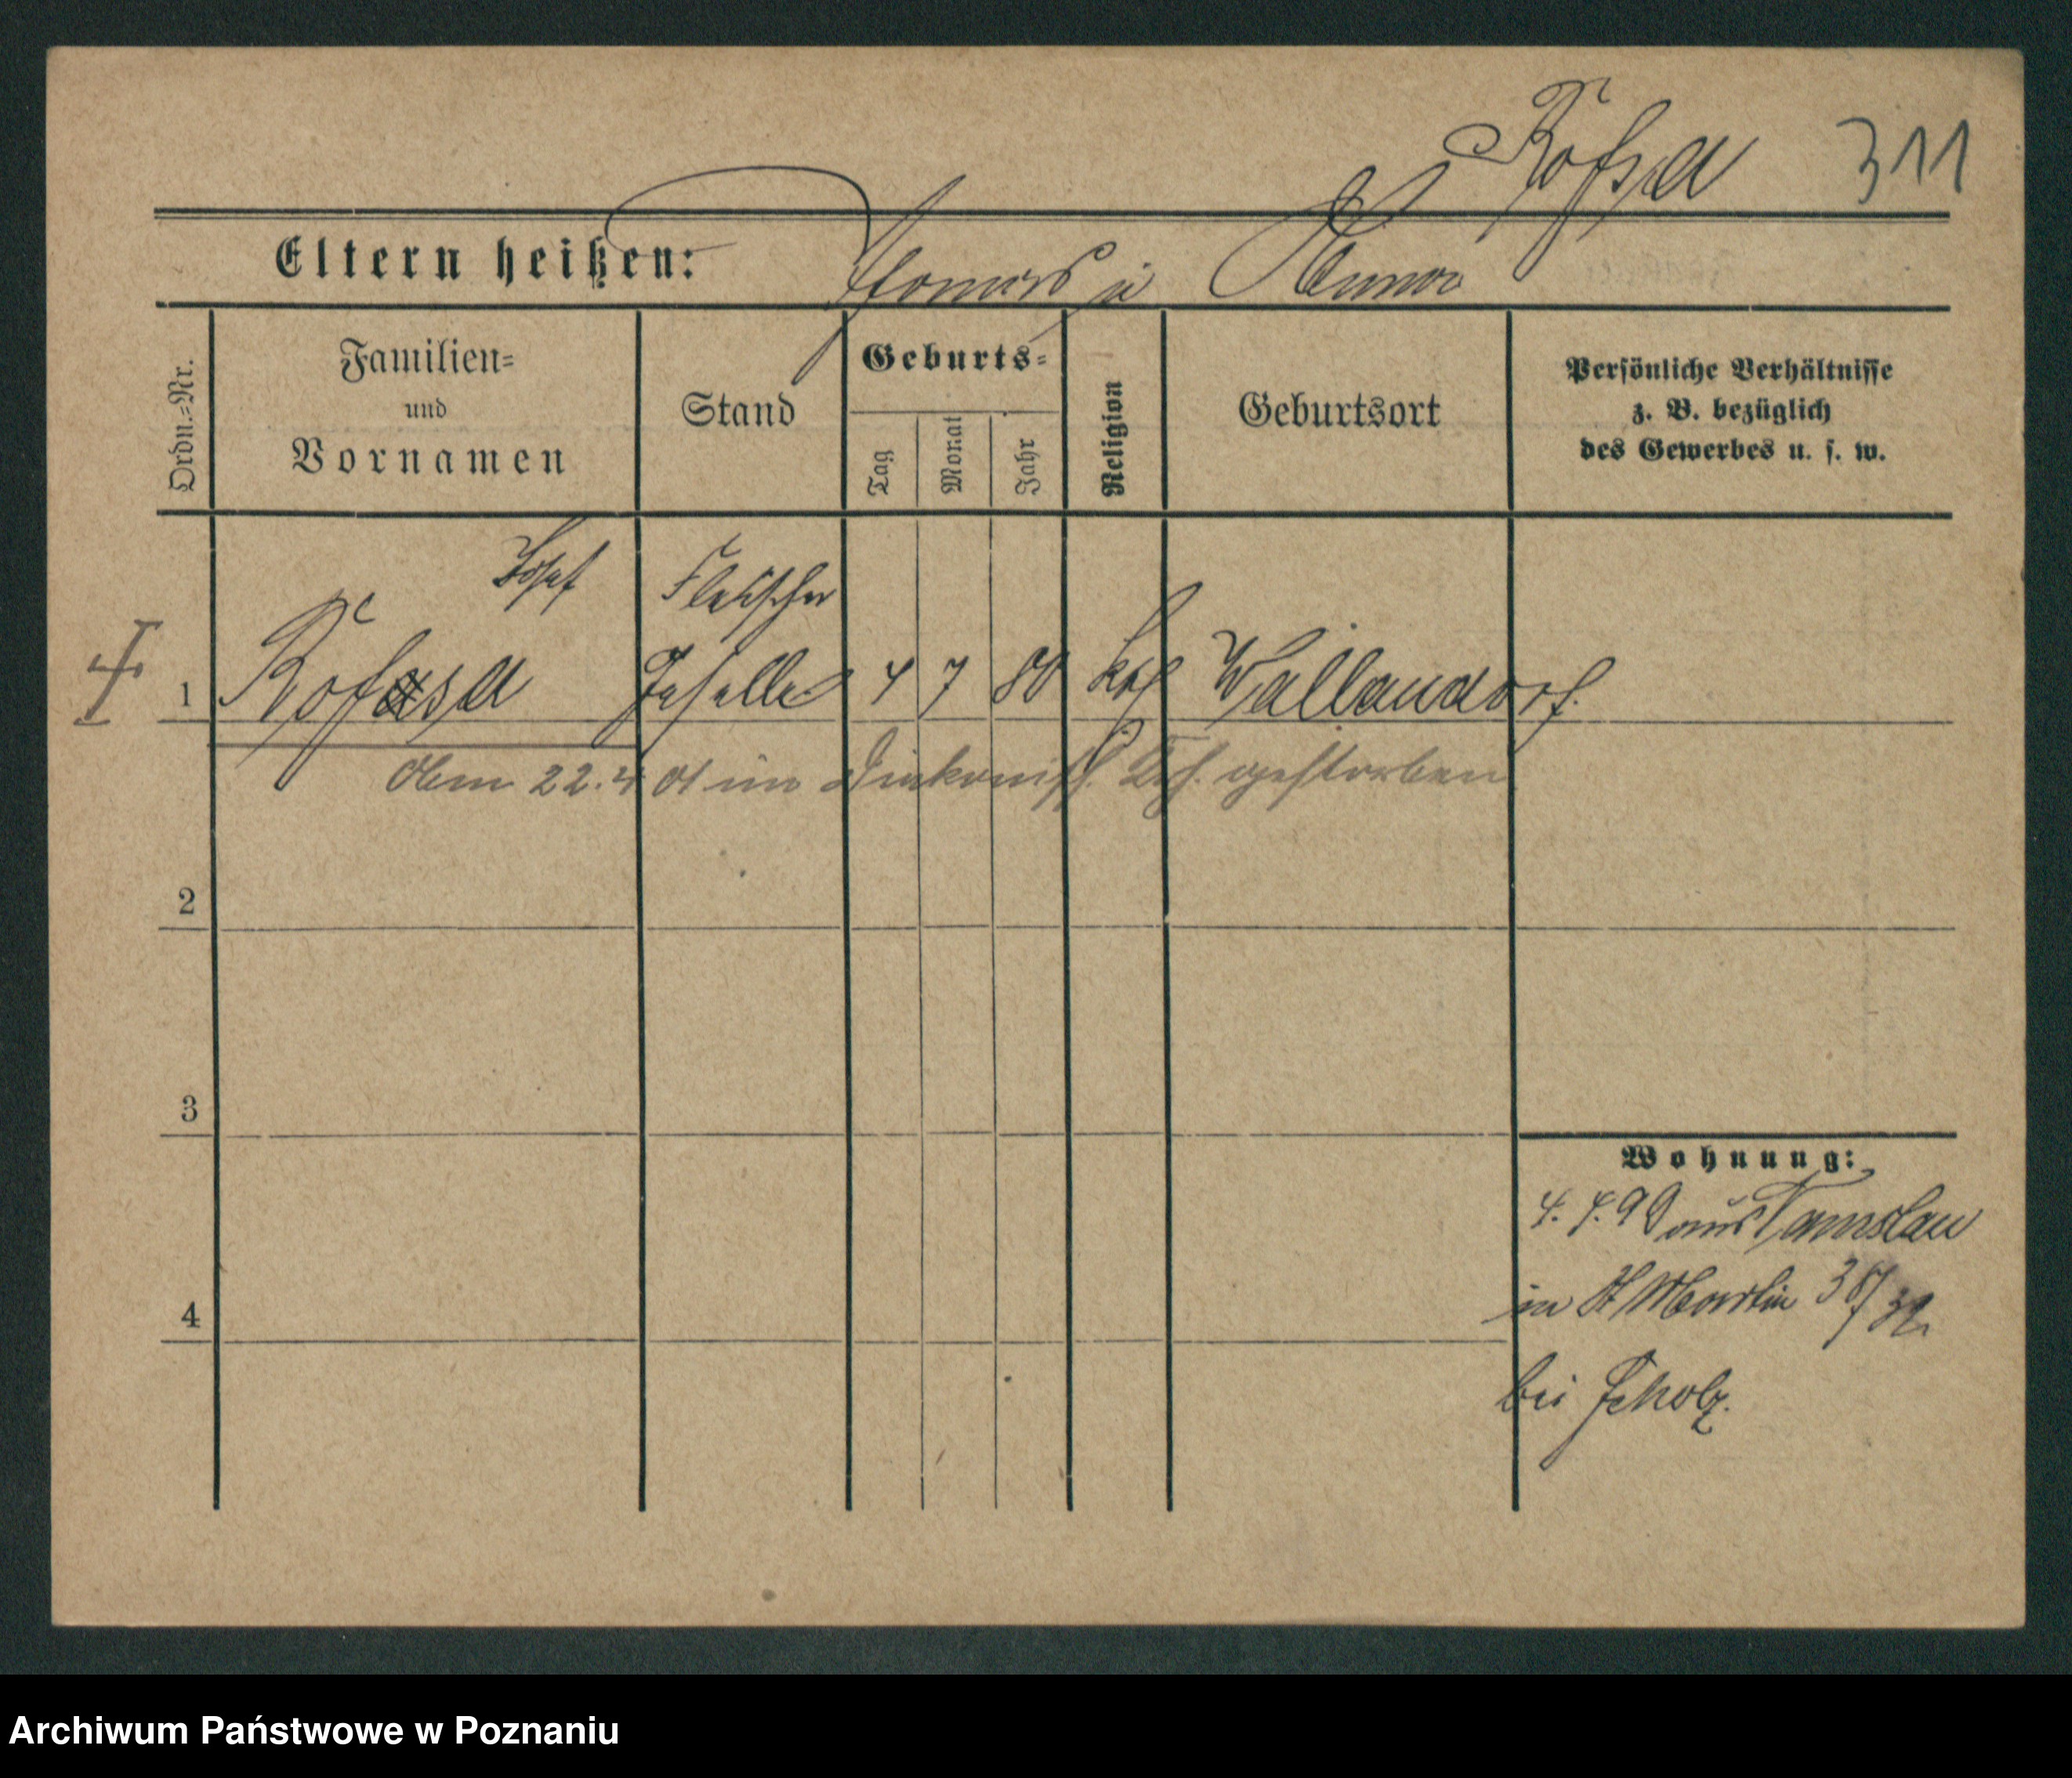 Kofsa 311
Eltern heißen: Thomas u Anna
Ordn.=Nr.
Familien=
und
Vornamen
Stand
Geburts=
Tag
Monat
Jahr
Religion
Geburtsort
Persönliche Verhältnisse
z. B. bezüglich
des Gewerbes u. s. w.
Josef Fleischer
1 Kofsa Geselle 4 7 80 kth Wallendorf.
Am 22.4 01 im Diakoniss. Krh. gestorben
2
3
4
Wohnung:
4. 4. 99 aus Namslau
in St Martin
bei Scholz.
Archiwum Państwowe w Poznaniu